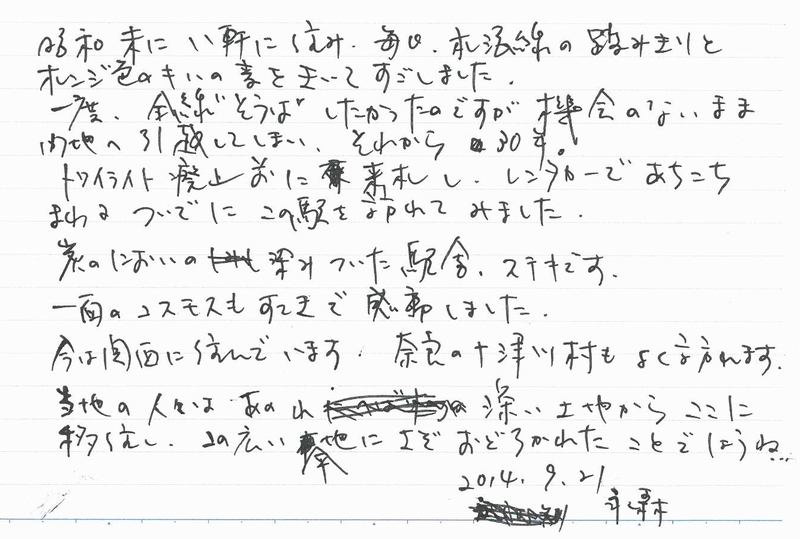 昭和末に八軒に住み、毎日、札沼線の踏み切りと
オレンジ色のキハの音を聞いてすごしました。
一度、全線"そうは"したかったのですが機会のないまま
内地へ引越してしまい、それから 30年。
トワイライト廃止前に来札し、レンタカーであちこち
まわるついでにこの駅を訪れてみました。
炭のにおいの深みついた駅舎、ステキです。
一面のコスモスもすてきで感動しました。
今は関西に住んでいます。奈良の十津川村もよく訪れます。
当地の人々は あの 深い土地からここに
移住し、この広い 地にさぞおどろかれたことでしょうね...
2014.9.21